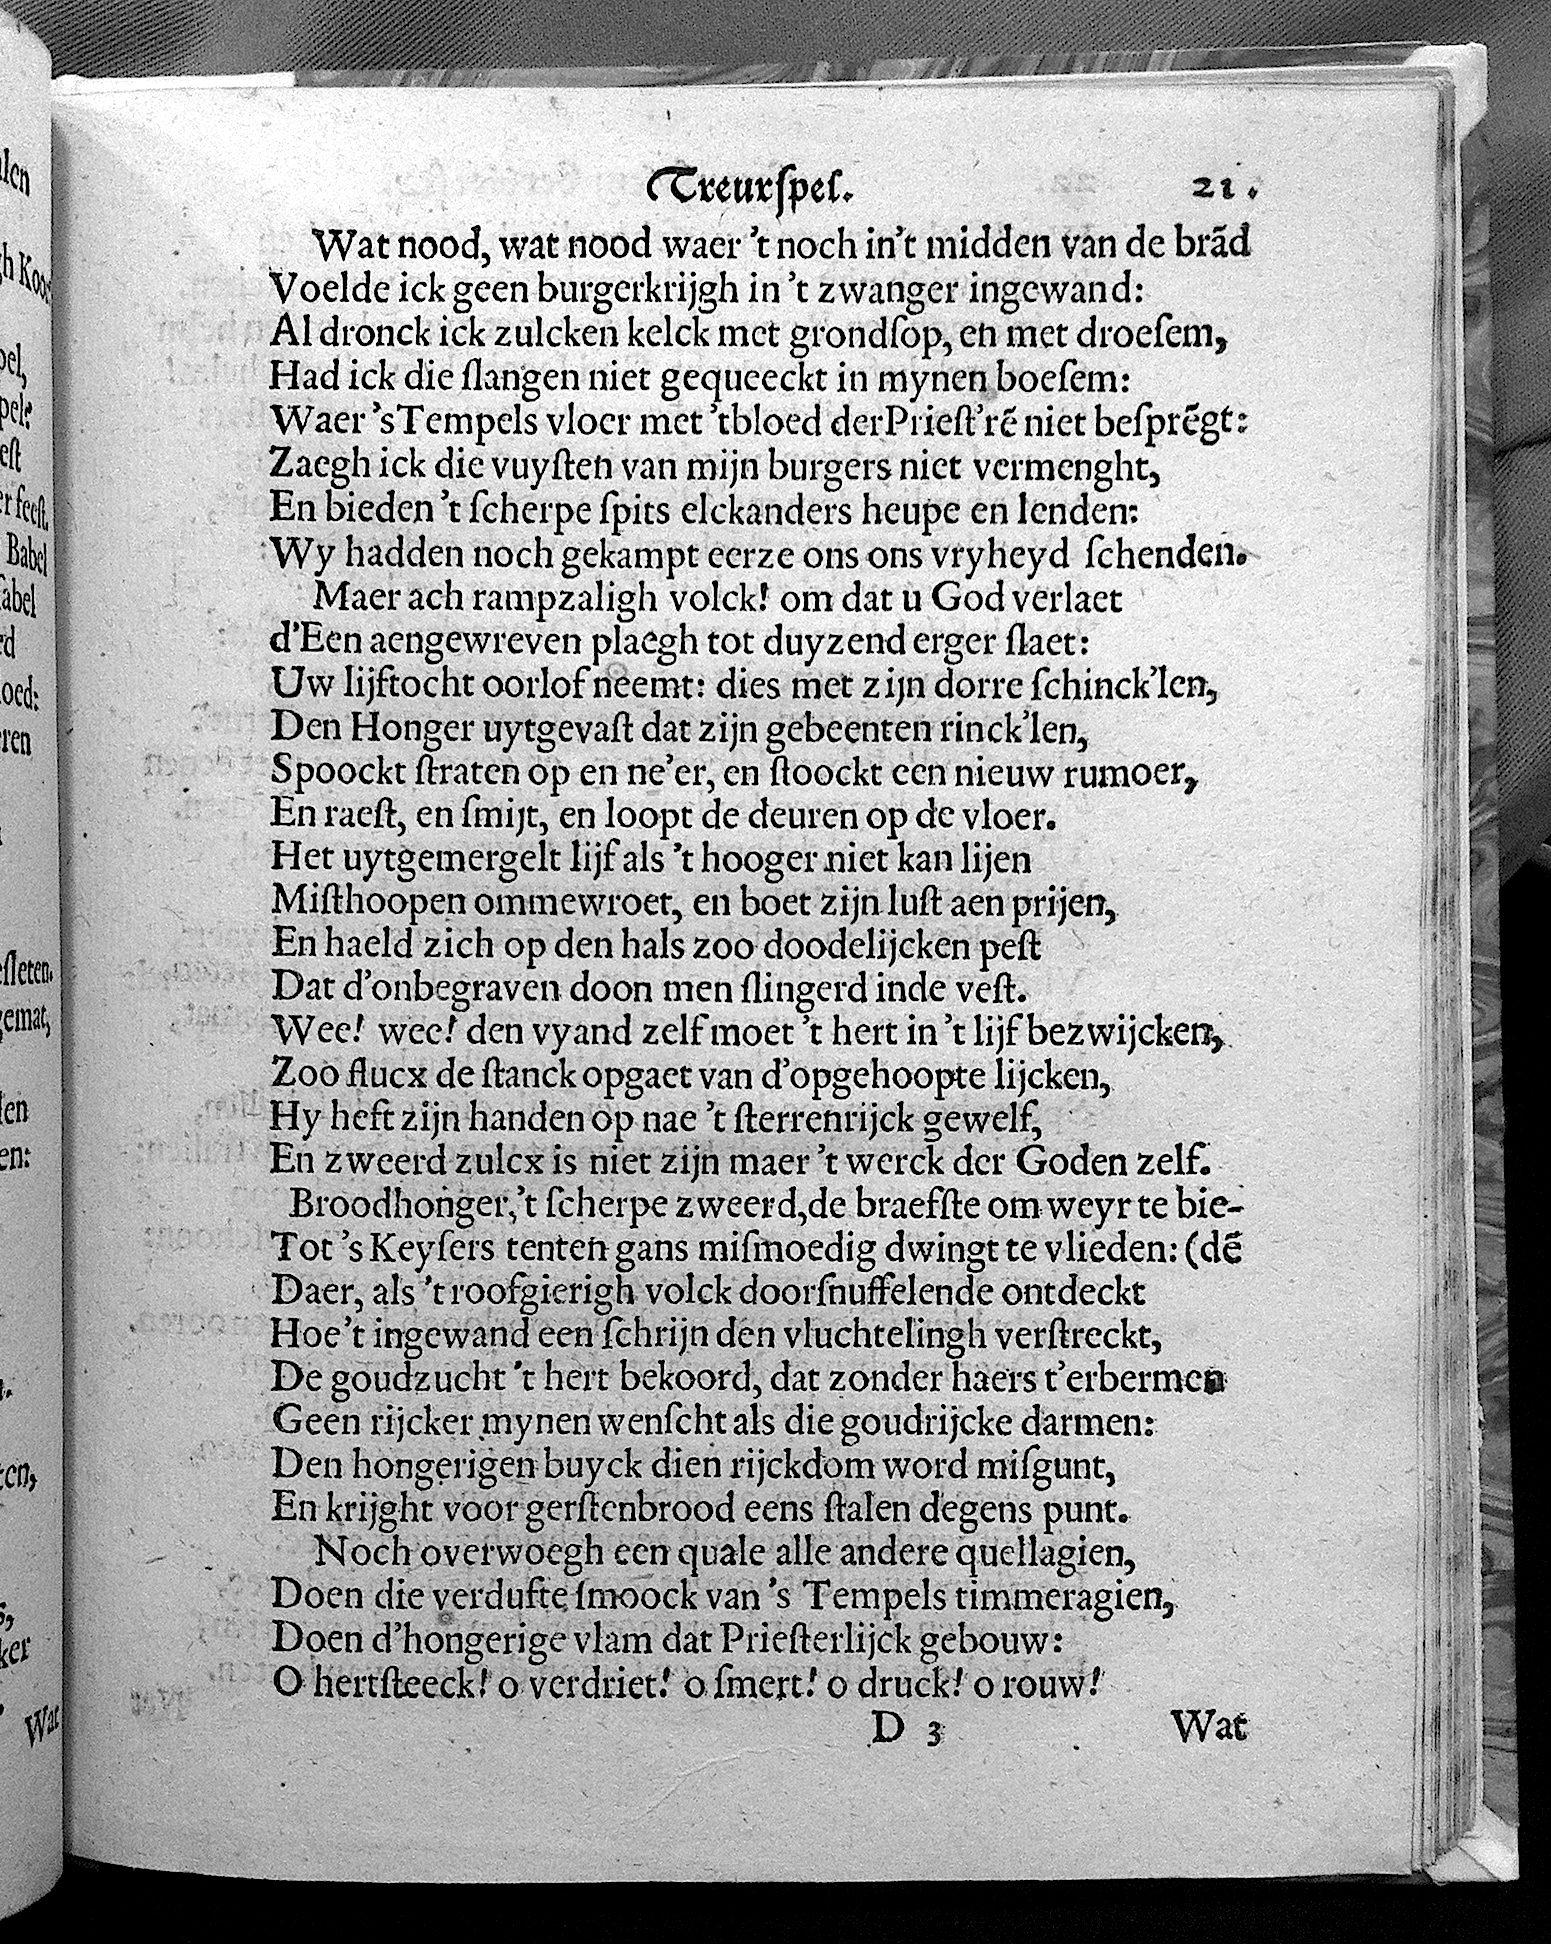 Treurſpel. 21.
Wat nood, wat nood waer 't noch in't midden van de brãd
Voelde ick geen burgerkrijgh in 't zwanger ingewand:
Al dronck ick zulcken kelck met grondſop, en met droeſem,
Had ick die ſlangen niet gequeeckt in mynen boeſem:
Waer 's Tempels vloer met 'tbloed der Prieſt'rẽ niet beſprẽgt:
Zaegh ick die vuyſten van mijn burgers niet vermenght,
En bieden 't ſcherpe ſpits elckanders heupe en lenden:
Wy hadden noch gekampt eerze ons ons vryheyd ſchenden.
Maer ach rampzaligh volck! om dat u God verlaet
d'Een aengewreven plaegh tot duyzend erger ſlaet:
Uw lijftocht oorlof neemt: dies met zijn dorre ſchinck'len,
Den Honger uytgevaſt dat zijn gebeenten rinck'len,
Spoockt ſtraten op en ne'er, en ſtoockt een nieuw rumoer,
En raeſt, en ſmijt, en loopt de deuren op de vloer.
Het uytgemergelt lijf als 't hooger niet kan lijen
Miſthoopen ommewroet, en boet zijn luſt aen prijen,
En haeld zich op den hals zoo doodelijcken peſt
Dat d'onbegraven doon men ſlingerd inde veſt.
Wee! wee! den vyand zelf moet 't hert in 't lijf bezwijcken,
Zoo flucx de ſtanck opgaet van d'opgehoopte lijcken,
Hy heft zijn handen op nae 't ſterrenrijck gewelf,
En zweerd zulcx is niet zijn maer 't werck der Goden zelf.
Broodhonger,'t ſcherpe zweerd,de braefſte om weyr te bie-
Tot 's Keyſers tenten gans miſmoedig dwingt te vlieden: (dẽ
Daer, als 't roofgierigh volck doorſnuffelende ontdeckt
Hoe't ingewand een ſchrijn den vluchtelingh verſtreckt,
De goudzucht 't hert bekoord, dat zonder haers t'erbermen
Geen rijcker mynen wenſcht als die goudrijcke darmen:
Den hongerigen buyck dien rijckdom word miſgunt,
En krijght voor gerſtenbrood eens ſtalen degens punt.
Noch overwoegh een quale alle andere quellagien,
Doen die verdufte ſmoock van 's Tempels timmeragien,
Doen d'hongerige vlam dat Prieſterlijck gebouw:
O hertſteeck! o verdriet! o ſmert! o druck! o rouw!
D 3 Wat